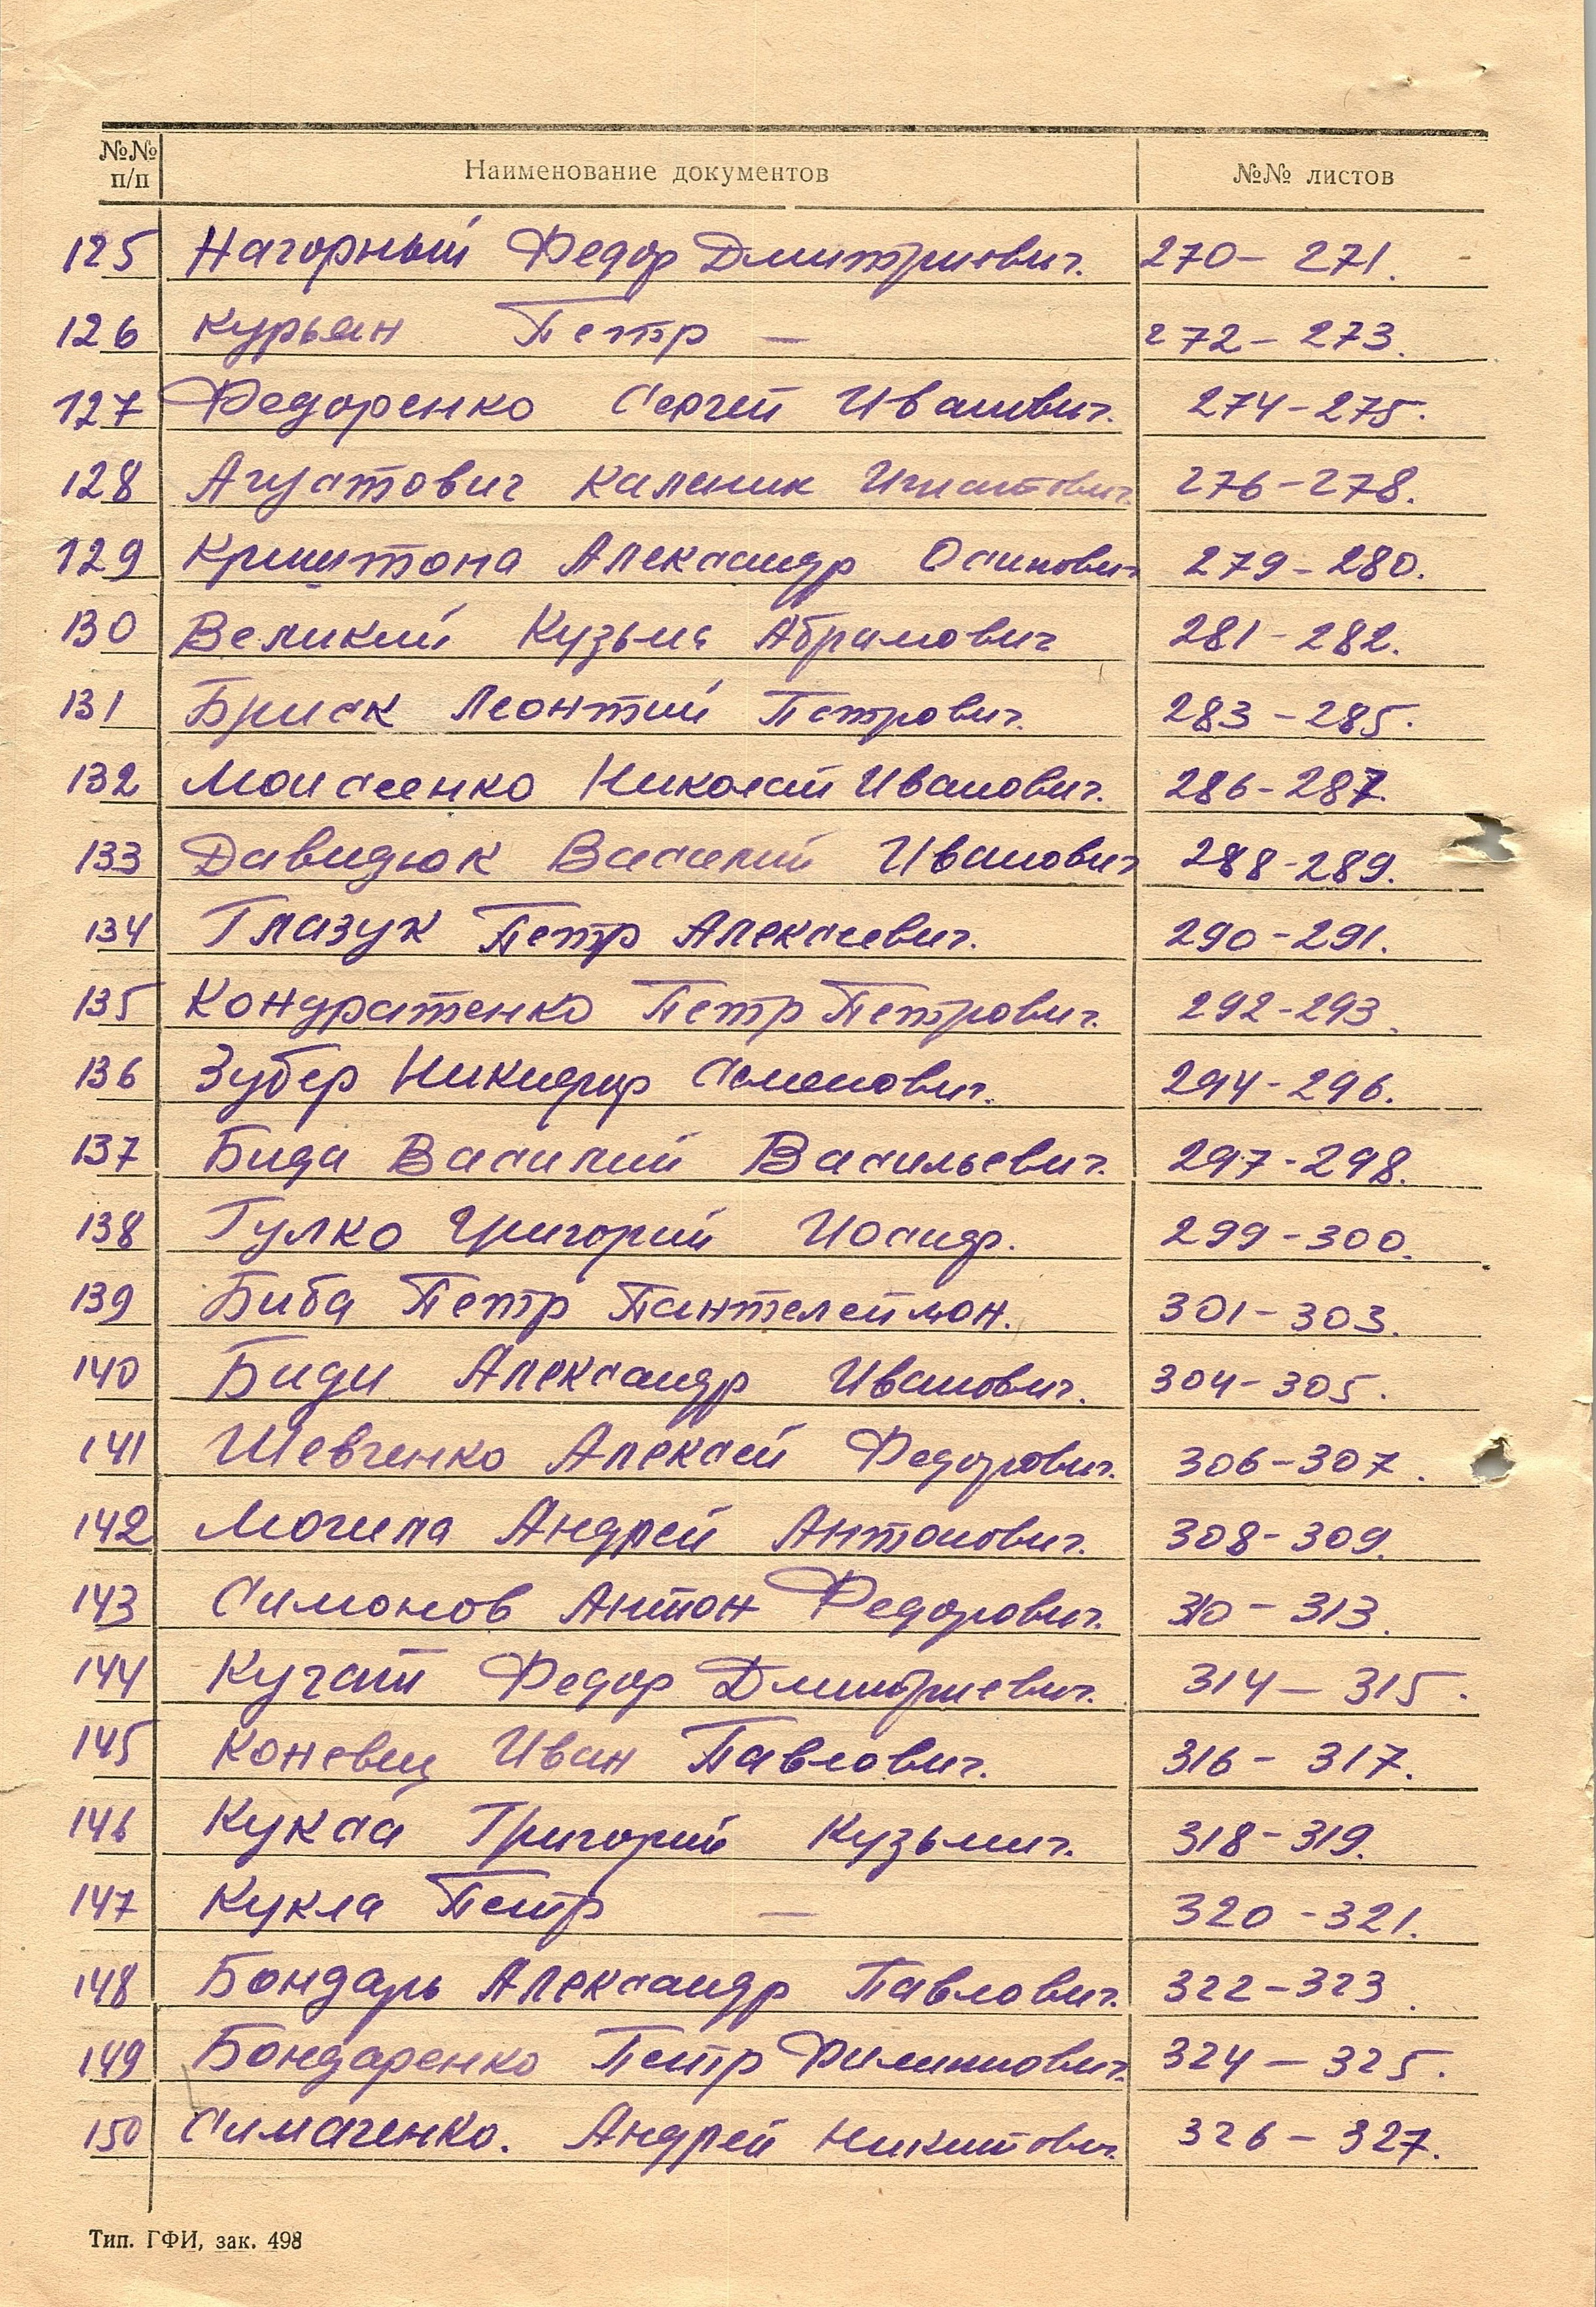 №№ п/п Наименование документов №№ листов
125 Нагорный Федор Дмитриевич. 270 – 271.
126 Курьян Петр — 272 – 273.
127 Федоренко Сергей Иванович. 274 – 275.
128 Агустович Каленик Игнатович. 276 – 278.
129 Криштопа Александр Осипович 279 – 280.
130 Великий Кузьма Абрамович 281 – 282.
131 Бриск Леонтий Петрович. 283 – 285.
132 Моисеенко Николай Иванович. 286 – 287.
133 Давидюк Василий Иванович 288 – 289.
134 Глазук Петр Алексеевич. 290 – 291.
135 Кондратенко Петр Петрович. 292 – 293.
136 Зубер Никифор Семенович. 294 – 296.
137 Бида Василий Васильевич. 297 – 298.
138 Гулко Григорий Иосиф. 299 – 300.
139 Биба Петр Пантелеймон. 301 – 303.
140 Биди Александр Иванович. 304 – 305.
141 Шевченко Алексей Федорович. 306 – 307.
142 Могила Андрей Антонович. 308 – 309.
143 Симонов Антон Федорович. 310 – 313.
144 Кучай Федор Дмитриевич. 314 – 315.
145 Коневец Иван Павлович. 316 – 317.
146 Кукса Григорий Кузьмич. 318 – 319.
147 Кукла Петр — 320 – 321.
148 Бондарь Александр Павлович. 322 – 323.
149 Бондаренко Петр Филиппович. 324 – 325.
150 Симаченко. Андрей Никитович. 326 – 327.
Тип. ГФИ, зак. 498